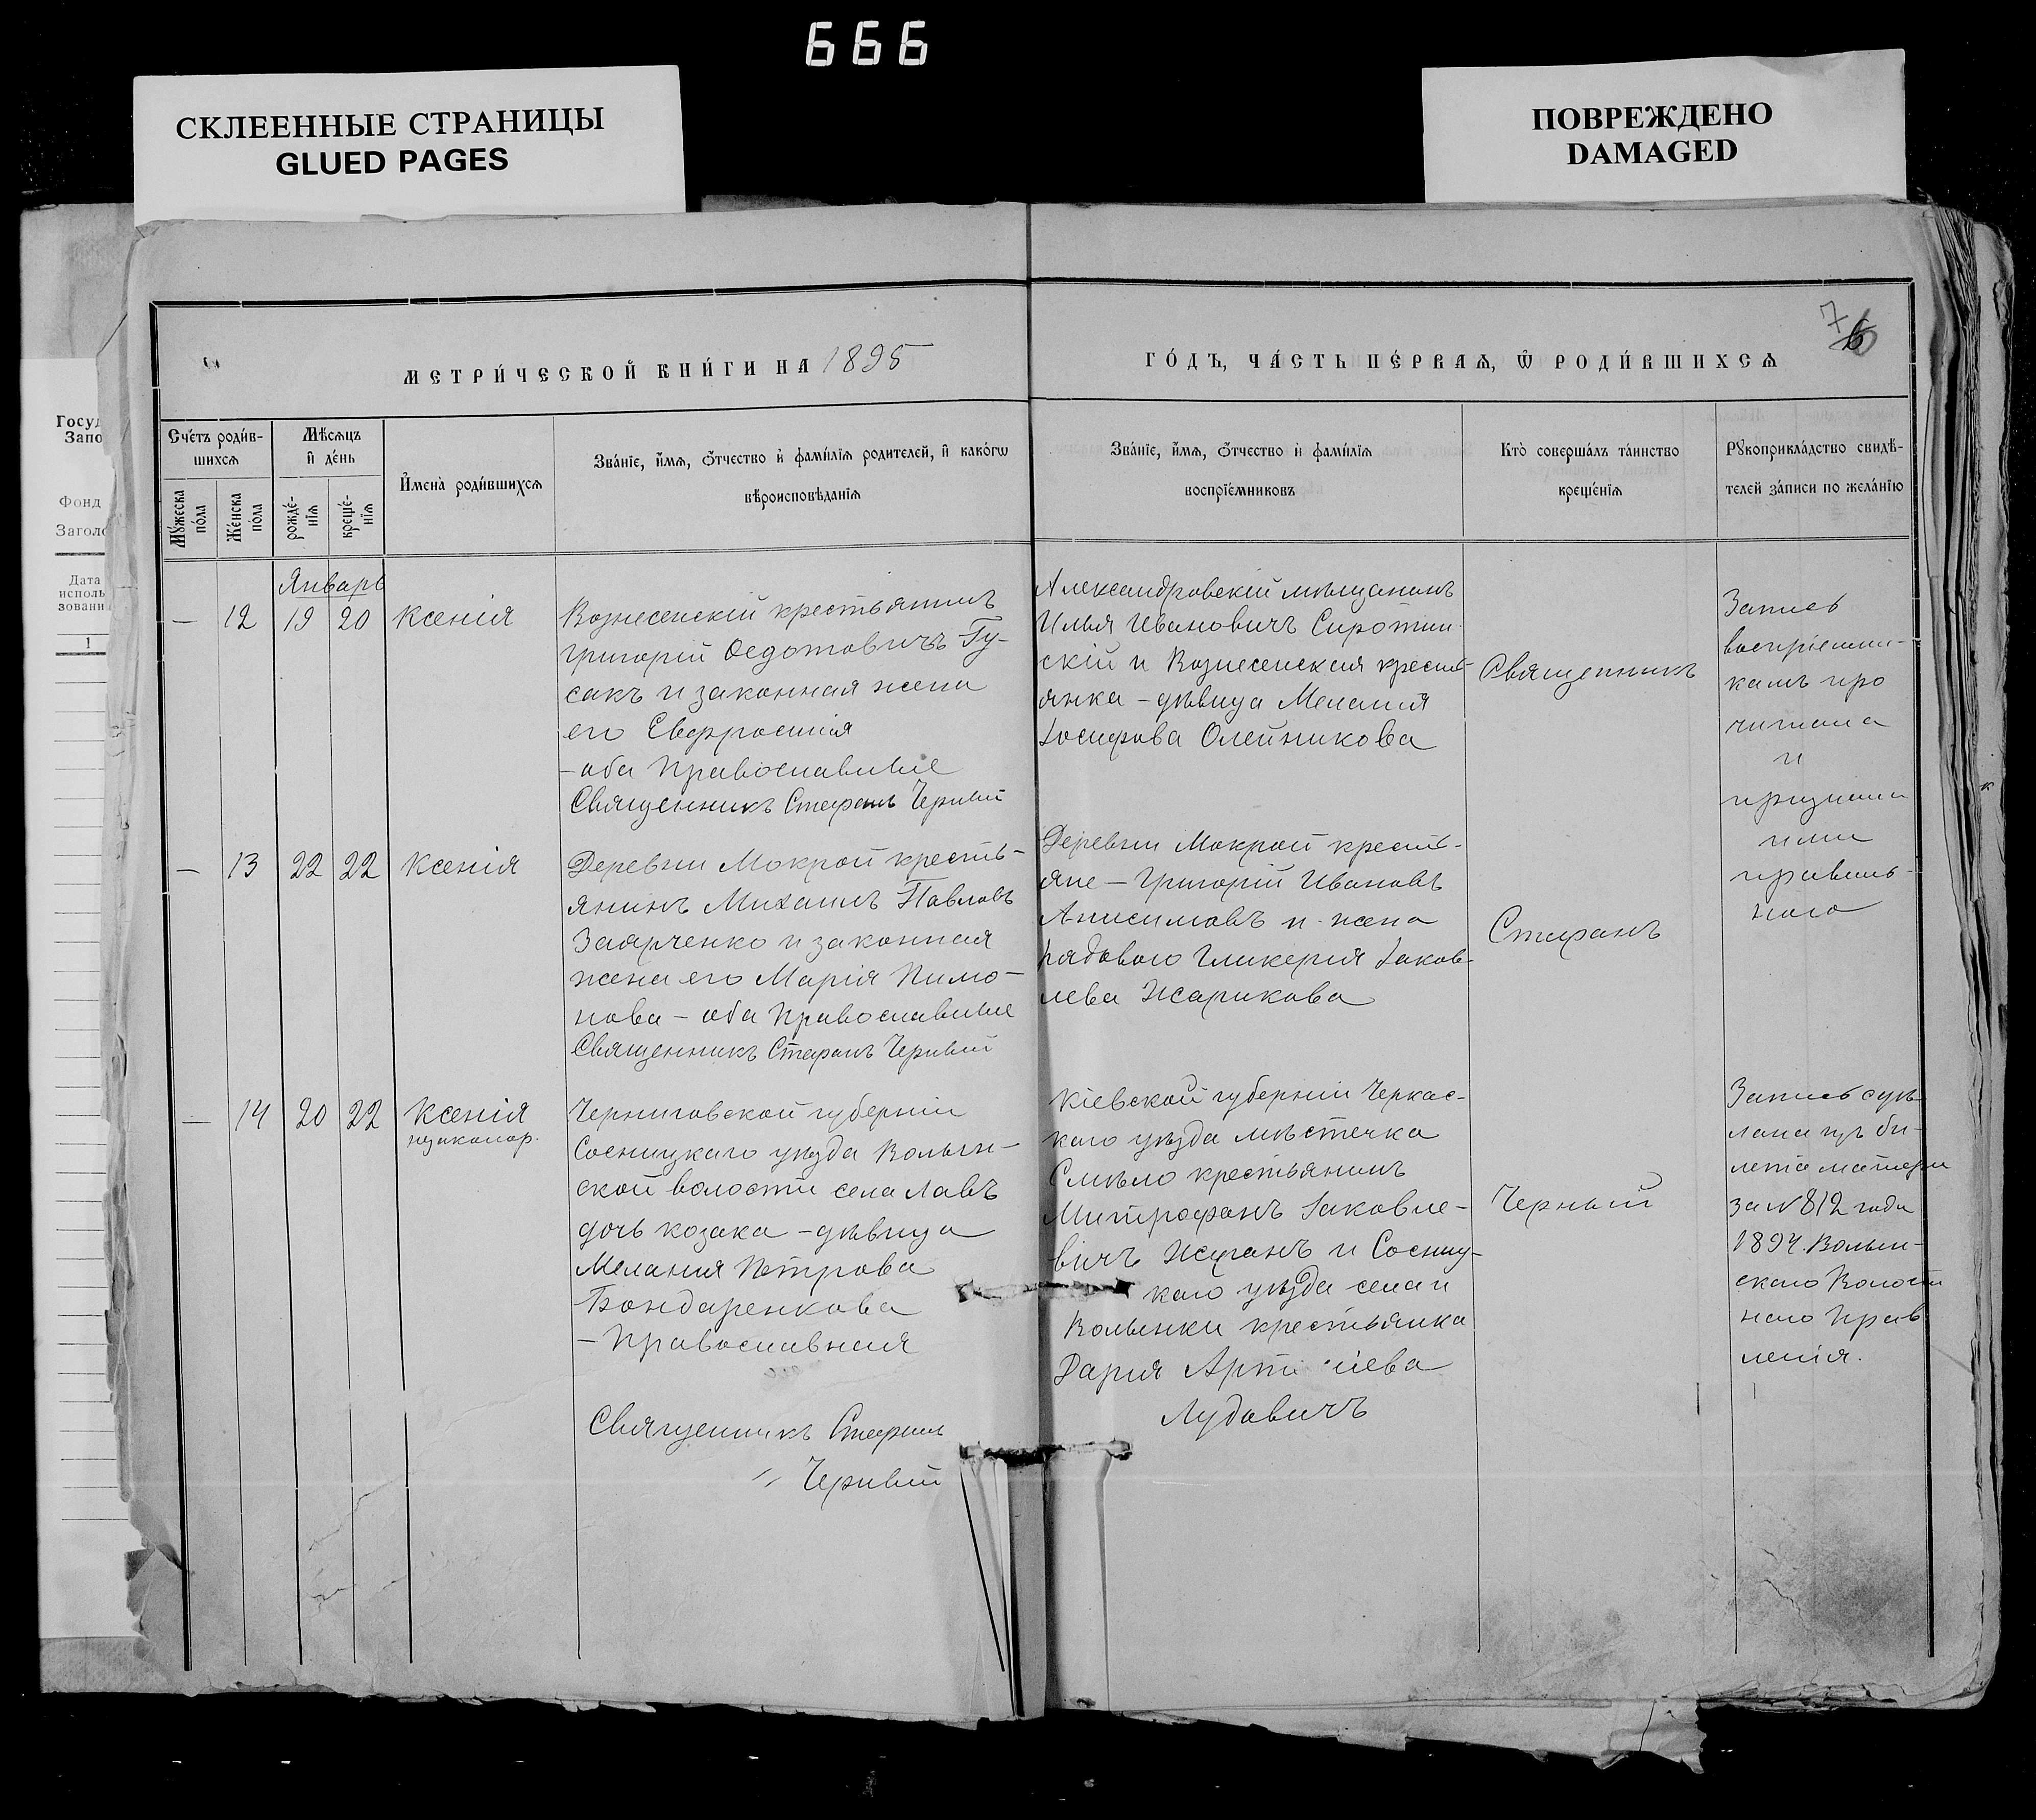 666
СКЛЕЕННЫЕ СТРАНИЦЫ
GLUED PAGES
ПОВРЕЖДЕНО
DAMAGED
Госуд
Запо
Фонд
Заголо
Дата
исполь
зовани
1
МЕТРИ́ЧЕСКОЙ КНИ́ГИ НА 1895
ГО́ДЪ, ЧА́СТЬ ПЕ́РВАѦ, Ѿ РОДИ́ВШИХСѦ
76
Сче́тъ роди́в-
шихсѧ
Мꙋ́жеска по́ла
Же́нска по́ла
Мѣ́сѧцъ
и҆ де́нь
рожде́-
нїѧ
креще́-
нїѧ
И҆мена̀ роди́вшихсѧ
Зва́нїе, и҆́мѧ, ѻ҆́тчество и҆ фамі́лїѧ родителей, и҆ како́гѡ
вѣроисповѣ́данїѧ
Зва́нїе, и҆́мѧ, ѻ҆́тчество и҆ фамі́лїѧ
воспрїе́мниковъ
Кто̀ соверша́лъ та́инство
креще́нїѧ
Рꙋкоприкла́дство свидѣ́-
телей за́писи по жела́нїю
Январь
— 12 19 20 Ксенія
Вознесенскій крестьянинъ
Григорій Ѳедотовичъ Гу-
сакъ и законная жена
его Евфросинія
– оба православные
Священникъ Стефанъ Черный
Александровскій мѣщанинъ
Илья Ивановичъ Сиротин
скій и Вознесенская кресть-
янка – дѣвица Меланія
Іосифова Олейникова
Священникъ
Запись
воспріемни-
камъ про
читана
и
признана
ими
правиль-
ною
— 13 22 22 Ксенія
Деревни Мокрой кресть-
янинъ Михаилъ Павловъ
Заярченко и законная
жена его Марія Пимо-
нова – оба православные
Священникъ Стефанъ Черный
Деревни Мокрой кресть-
яне – Григорій Ивановъ
Анисимовъ и жена
рядового Гликерія Іаков-
лева Жарикова
Стефанъ
— 14 20 22 Ксенія
незаконор.
Черниговской губерніи
Сосницкаго уѣзда Волын-
ской волости села Лавъ
дочь козака – дѣвица
Меланія Петрова
Бондаренкова
– Православная
Священникъ Стефанъ
Черный
Кіевской губерніи Черкас-
каго уѣзда мѣстечка
Смѣло крестьянинъ
Митрофанъ Іаковле-
вичъ и Сосниц-
каго уѣзда села
Волынки крестьянка
Дарія
Лудовичъ
Черный
Запись сдѣ
лана изъ би-
лета матери
за № 812 года
1894. Волын-
скаго Волост
наго Прав
ленія.